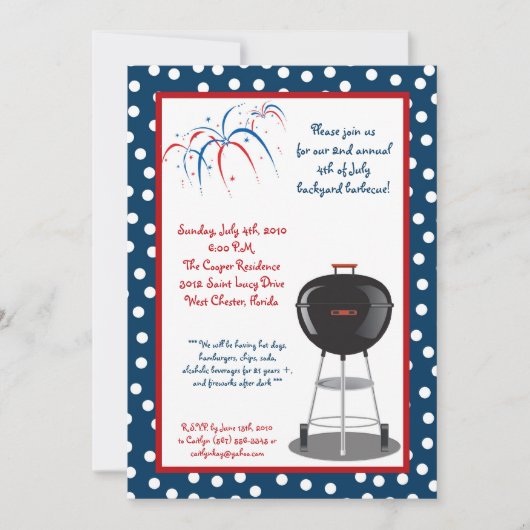 Please join us
for our 2nd annual
4th of July
backyard barbecue!
Sunday, July 4th, 2010
6:00 P.M.
The Cooper Residence
3012 Saint Lucy Drive
West Chester, Florida
***We will be having hot dogs,
hamburgers, chips, soda,
alcoholic beverages for 21 years +,
and fireworks after dark ***
R.S.V.P. by June 13th, 2010
to Caitlyn
caitlynkay@yahoo.com